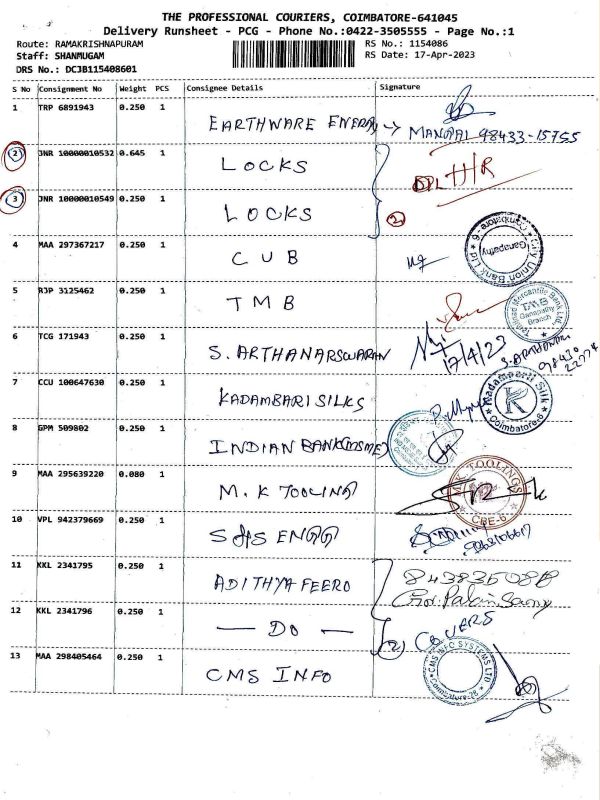 THE PROFESSIONAL COURIERS, COIMBATORE-641045
Delivery Runsheet - PCG - Phone No.:0422-3505555 - Page No.:1
Route: RAMAKRISHNAPURAM RS No.: 1154086
Staff: SHANMUGAM RS Date: 17-Apr-2023
DRS No.: DCJB115408601
S No Consignment No Weight PCS Consignee Details Signature
1 TRP 6891943 0.250 1
EARTHWARE ENERGY → 98433-15755
2 JNR 10000010532 0.645 1
LOCKS
3 JNR 10000010549 0.250 1
LOCKS 2
4 MAA 297367217 0.250 1
CUB
City Union Bank Ltd Ganapathy Coimbatore - 6
5 RJP 3125462 0.250 1
TMB
Tamilnad Mercantile Bank Ltd., TMB Ganapathy Branch
6 TCG 171943 0.250 1
S. ARTHANARSWARAN 17/4/23
7 CCU 100647630 0.250 1
KADAMBARI SILKS
Kadambari Silk K Coimbatore-6
8 GPM 509802 0.250 1
INDIAN BANK (MSME)
9 MAA 295639220 0.080 1
M.K TOOLING
M.K. TOOLINGS CBE-6
10 VPL 942379669 0.250 1
S&S ENGG
11 KKL 2341795 0.250 1
ADITHYA FEERO
12 KKL 2341796 0.250 1
— DO — (2) COVERS
13 MAA 298405464 0.250 1
CMS INFO
CMS INFO SYSTEMS LTD